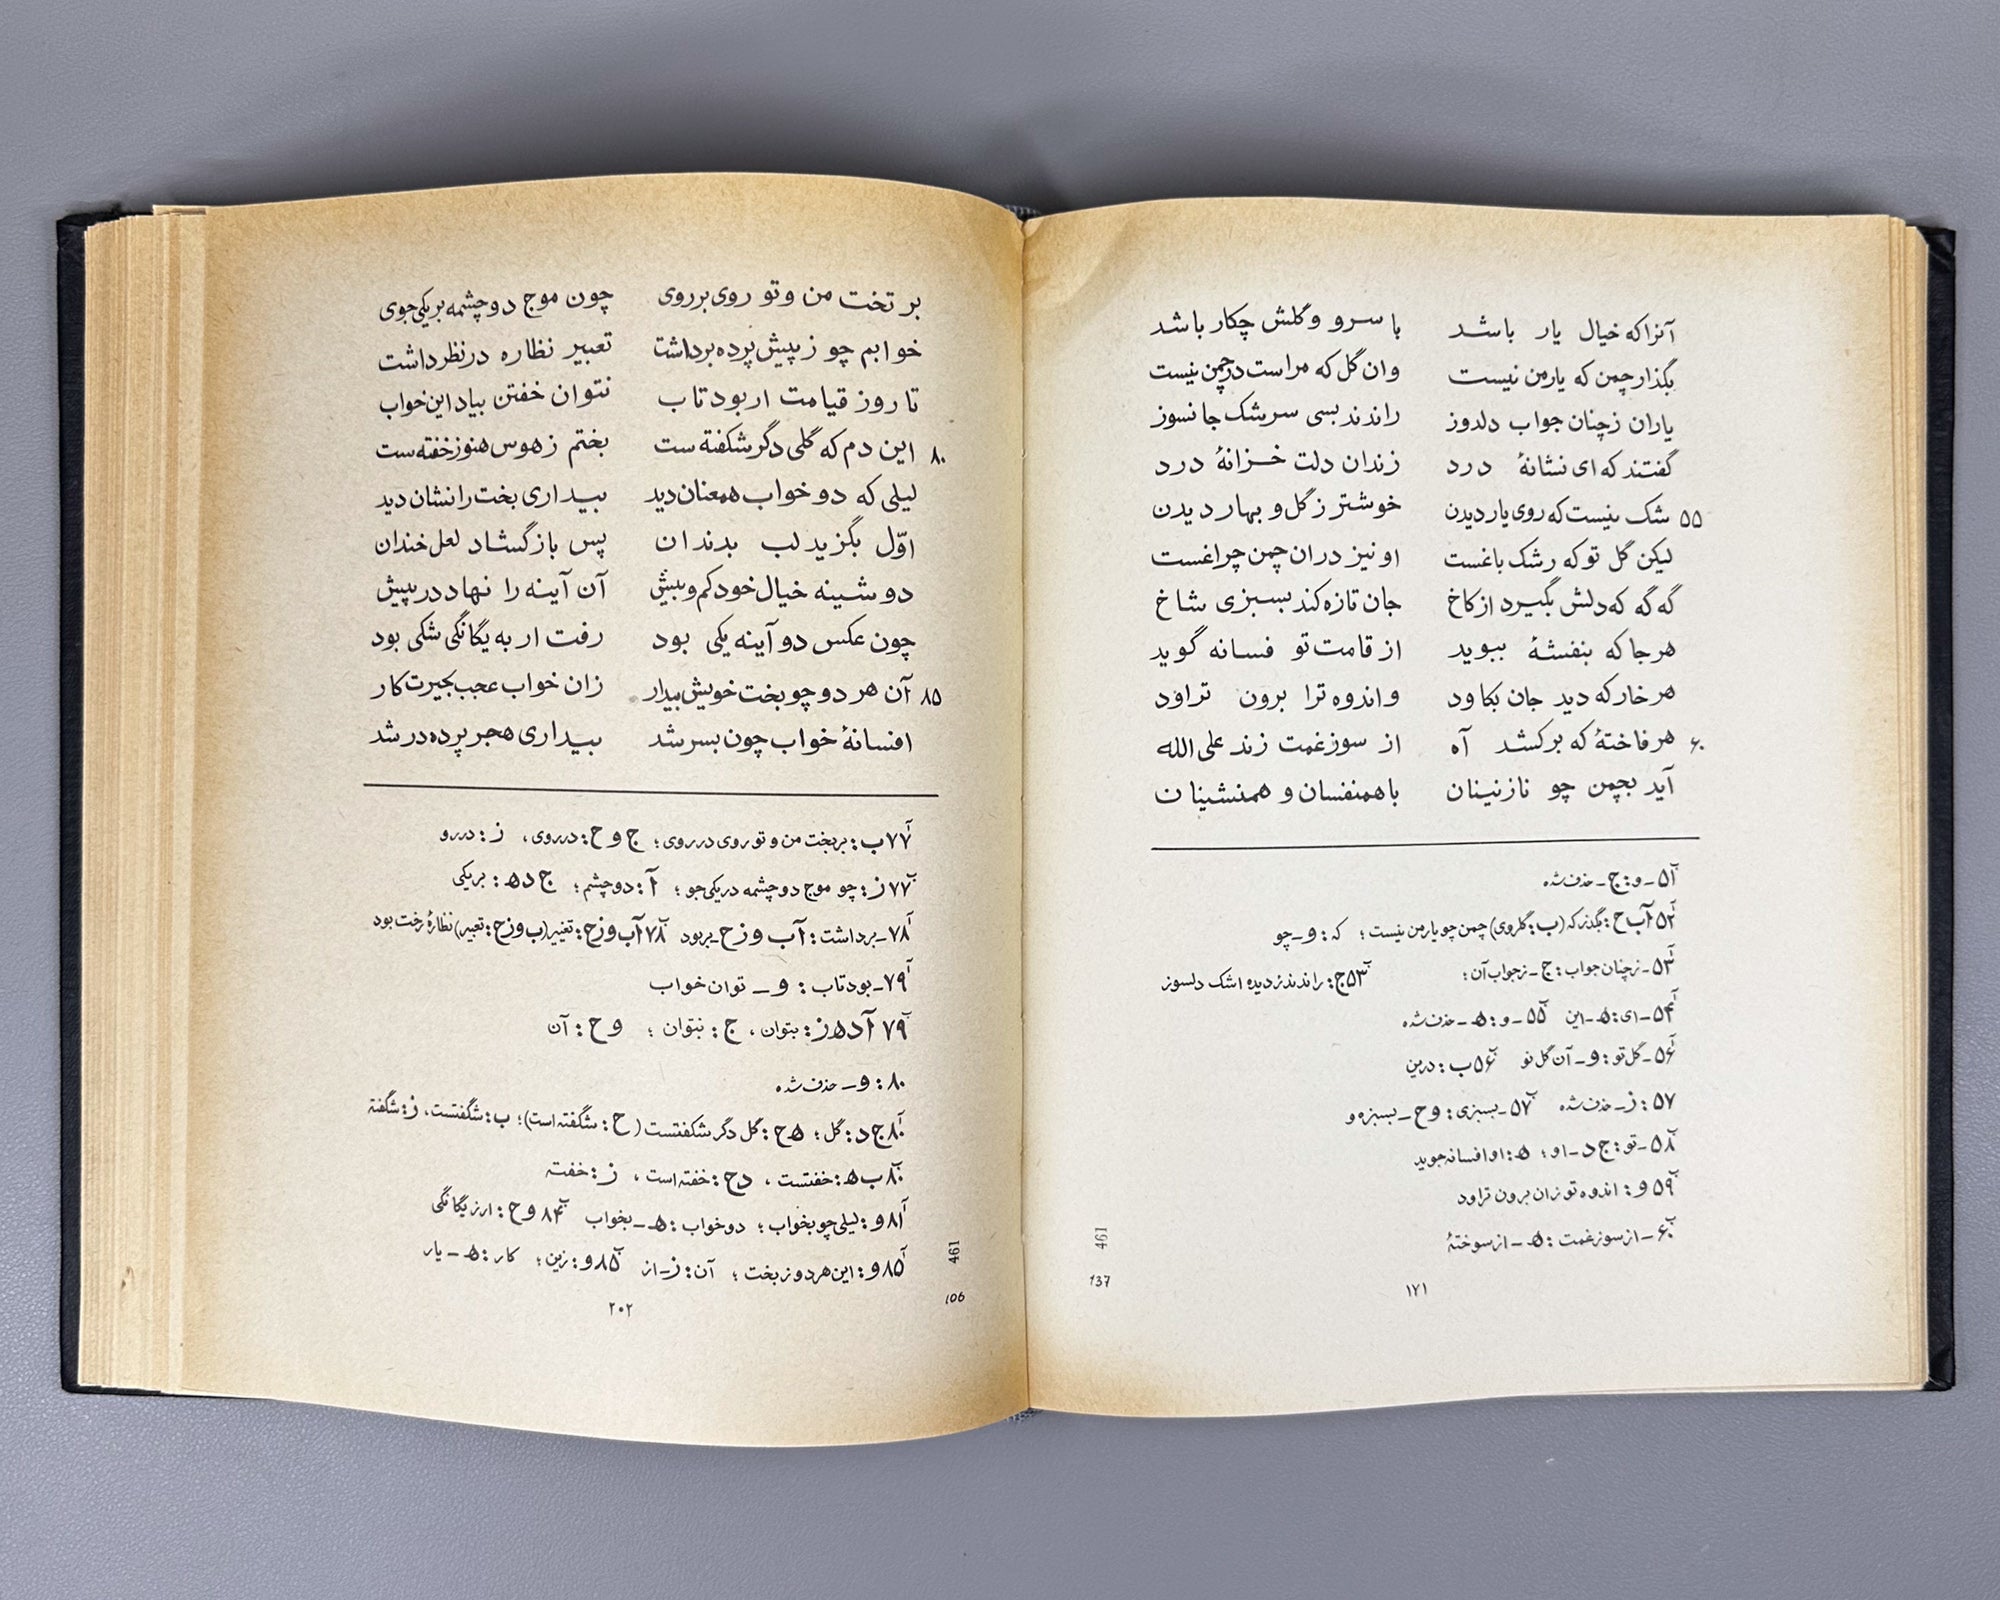 آنرا که خیال یار باشد با سرو و گلش چکار باشد
بگذار چمن که یار من نیست وان گل که مراست در چمن نیست
یاران ز چنان جواب دلدوز راندند بسی سرشک جانسوز
گفتند که ای نشانهٔ درد زندان دلت خزانهٔ درد
۵۵ شک نیست که روی یار دیدن خوشتر ز گل و بهار دیدن
لیکن گل تو که رشک باغست او نیز دران چمن چراغست
گه گه که دلش بگیرد از کاخ جان تازه کند بسبزی شاخ
هر جا که بنفشهٔ ببوید از قامت تو فسانه گوید
هر خار که دید جان بکاود و اندوه ترا برون تراود
۶۰ هر فاختهٔ که برکشد آه از سوز غمت زند علی الله
آید بچمن چو نازنینان با همنفسان و همنشینان
۵۱آ ـ و: ج ـ حذف شده
۵۲آ آب ح: بگذر که (ب: گلروی) چمن چو یار من نیست؛ که: و ـ چو
۵۳آ ـ ز چنان جواب: ج ـ ز جواب آن؛ ۵۳ب ج: راندند ز دیده اشک دلسوز
۵۴آ ـ ای: ه ـ این ۵۵ب ـ و: ه ـ حذف شده
۵۶آ ـ گل تو: و ـ آن گل تو ۵۶ب ب: در من
۵۷: ز ـ حذف شده ۵۷ب ـ بسبزی: و ح ـ بسبزه و
۵۸ب ـ تو: ج د ـ او؛ ه: او افسانه جوید
۵۹ب و: اندوه تو زان برون تراود
۶۰ب ـ از سوز غمت: ه ـ از سوختهٔ
461
137
۱۷۱
بر تخت من و تو روی بر روی چون موج دو چشمه بر یکی جوی
خوابم چو ز پیش پرده برداشت تعبیر نظاره در نظر داشت
تا روز قیامت ار بود تاب نتوان خفتن بیاد این خواب
۸۰ این دم که گلی دگر شکفته ست بختم ز هوس هنوز خفته ست
لیلی که دو خواب همعنان دید بیداری بخت را نشان دید
اوّل بگزید لب بدندان پس باز گشاد لعل خندان
دوشینه خیال خود کم و بیش آن آینه را نهاد در پیش
چون عکس دو آینه یکی بود رفت ار به یگانگی شکی بود
۸۵ آن هر دو چو بخت خویش بیدار زان خواب عجب بحیرت کار
افسانهٔ خواب چون بسر شد بیداری هجر پرده در شد
۷۷آ ب: بر بخت من و تو روی در روی؛ ج و ح: در روی، ز: در رو
۷۷ب ز: چو موج دو چشمه در یکی جو؛ آ: دو چشم؛ ج د ه: بر یکی
۷۸آ ـ برداشت: آ ب و ز ح ـ بر بود ۷۸ب آ ب و ز ح: تغییر (ب و ز ح: تعبیر) نظاره رخت بود
۷۹آ ـ بود تاب: و ـ توان خواب
۷۹ب آ د ه ز: بتوان، ج: نبتوان؛ و ح: آن
۸۰: و ـ حذف شده
۸۰آ ج د: گل؛ ه ح: گل دگر شکفتست (ح: شگفته است)؛ ب: شگفتست، ز: شگفته
۸۰ب ب ه: خفتست، د ح: خفته است، ز: خفته
۸۱آ و: لیلی چو بخواب؛ دو خواب: ه ـ بخواب ۸۴ب و ح: ار ز یگانگی
۸۵آ و: این هر دو ز بخت؛ آن: ز ـ از ۸۵ب و: زین؛ کار: ه ـ یار
461
106
۲۰۲